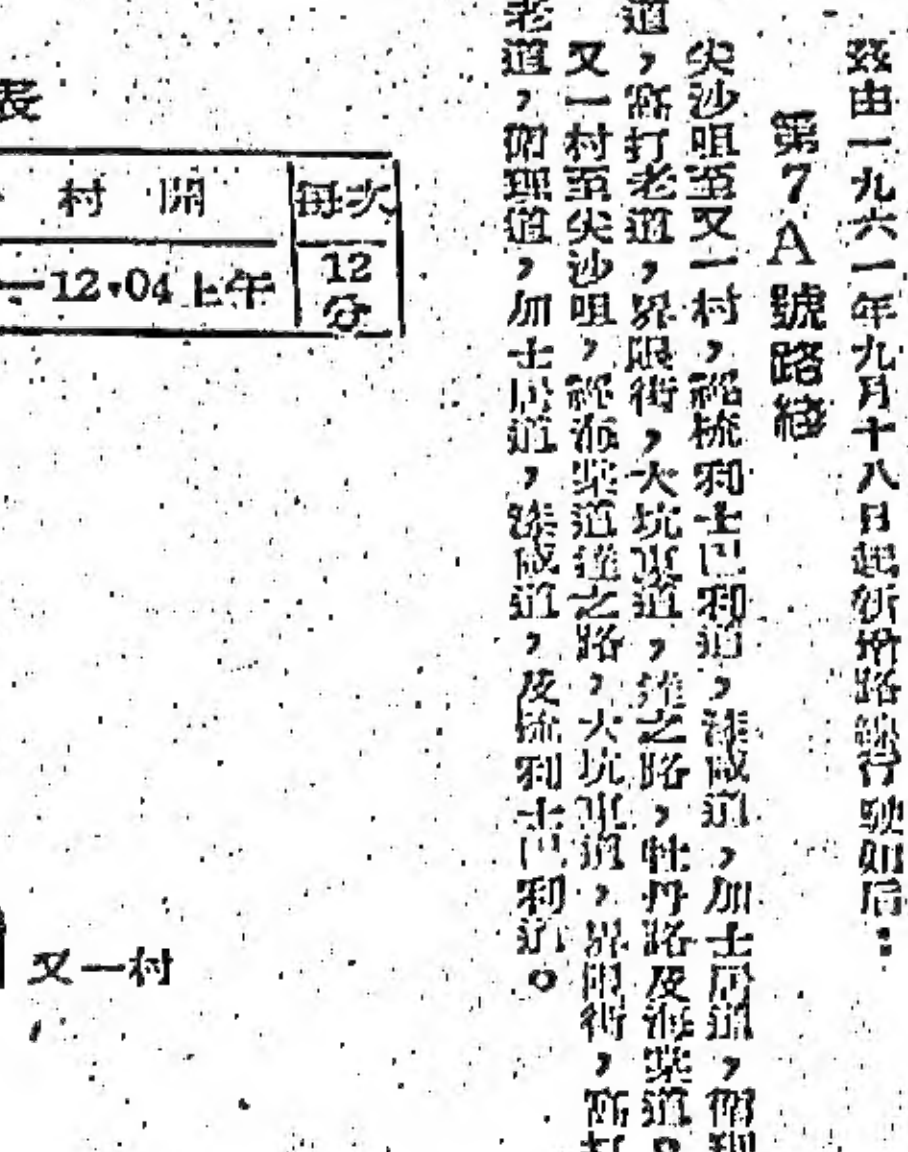 茲由一九六一年九月十八日起新增路綫行駛如后：
第7A號路綫
尖沙咀至又一村，經梳利士巴利道，漆咸道，加士居道，衛理
道，窩打老道，界限街，大坑東道，達之路，牡丹路及海棠道。
又一村至尖沙咀，經海棠道達之路，大坑東道，界限街，窩打
老道，衛理道，加士居道，漆咸道，及梳利士巴利道。
表
村開 每次
—12·04上午 12分
又一村